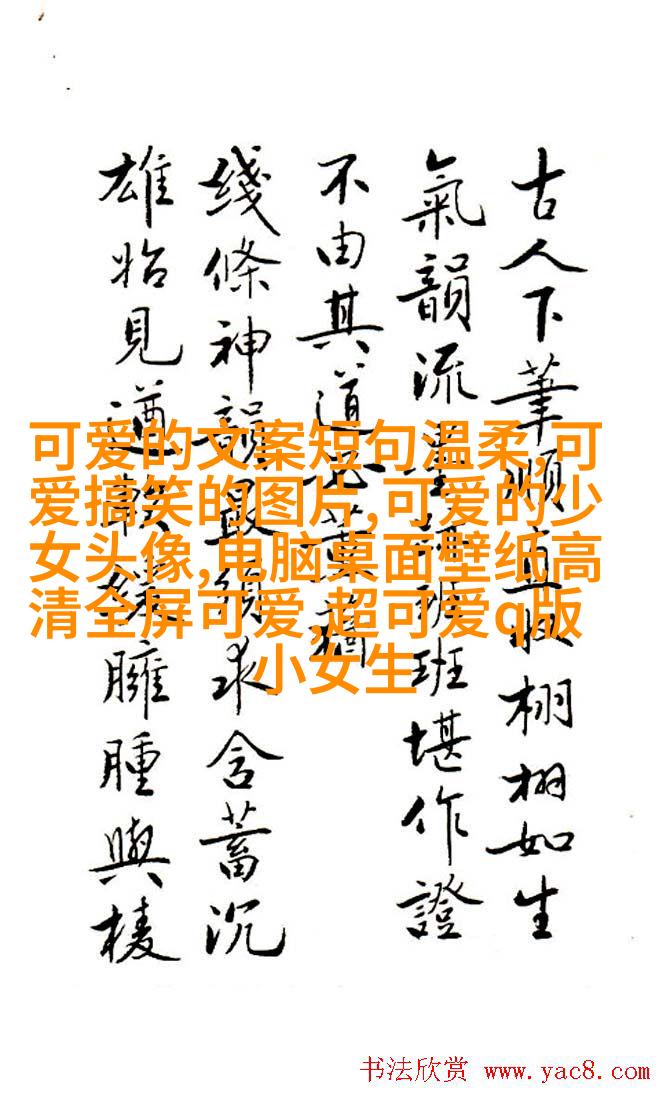 古人下筆順直取栩栩如生
氣韻流班班堪作證
不由其道猶
綫條神韻最須求含蓄沉
雄始見遒臃腫與棱
可爱的文案短句温柔,可
爱搞笑的图片,可爱的少
女头像,电脑桌面壁纸高
清全屏可爱,超可爱q版
小女生
书法欣赏 www.yac8.com